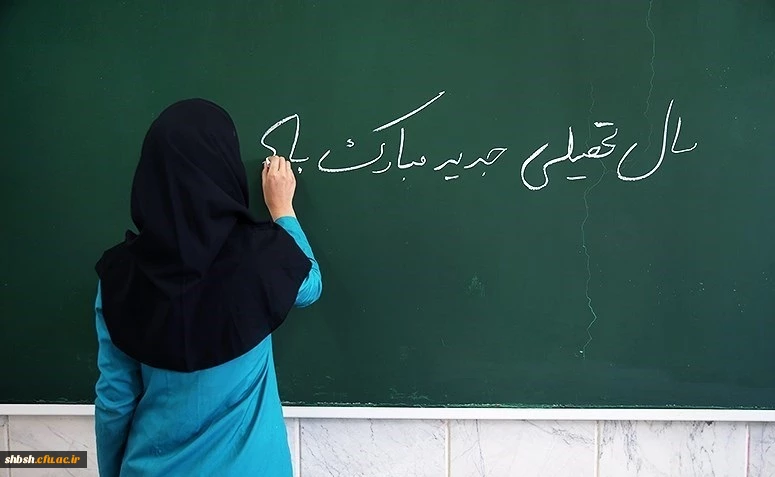 سال تحصیلی جدید مبارک با
shbsh.cfu.ac.ir